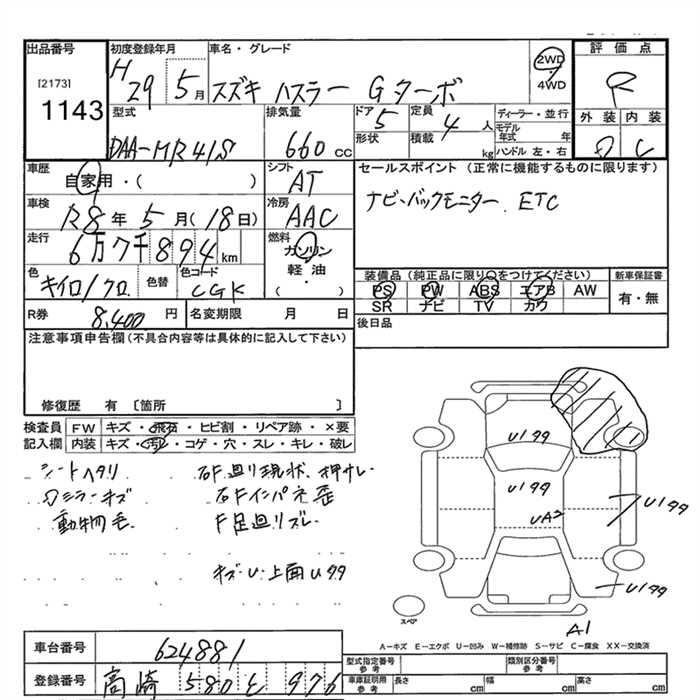 出品番号 初度登録年月 車名・グレード 評価点
[2173] H29 5月 スズキ ハスラー Gターボ 2WD 4WD R
1143
型式 排気量 ドア 5 定員 4人 ディーラー・並行 外装 内装
DAA-MR41S 660cc 形状 積載 kg モデル年式 年 ハンドル 左・右 D C
車歴 自家用・( ) シフト AT セールスポイント(正常に機能するものに限ります)
車検 R8年5月(18日) 冷房 AAC ナビ・バックモニター ETC
走行 6万7千894km 燃料 ガソリン 軽油 ・ ( )
色 キイロ/クロ 色替 色コード CGK
装備品(純正品に限り○をつけてください) 新車保証書
PS PW ABS エアB AW 有・無
SR ナビ TV カワ
R券 8,400円 名変期限 月 日 後日品
注意事項申告欄(不具合内容等は具体的に記入して下さい)
修復歴 有 〔箇所 〕
検査員 FW キズ・飛石・ヒビ割・リペア跡・×要
記入欄 内装 キズ・汚れ・コゲ・穴・スレ・キレ・破レ
シートヘタリ 右F廻り現状、押サレ
Dミラーキズ 右Fインパネ歪
動物毛 F足廻リズレ
キズ・U・上面U99
U199
U199
UA2
U199
U199
スペア
A1
A-キズ E-エクボ U-凹み W-補修跡 S-サビ C-腐食 XX-交換済
車台番号 624881 型式指定番号 参考 類別区分番号 参考
登録番号 高崎 580 と 976 車庫証明用 参考 長さ cm 幅 cm 高さ cm